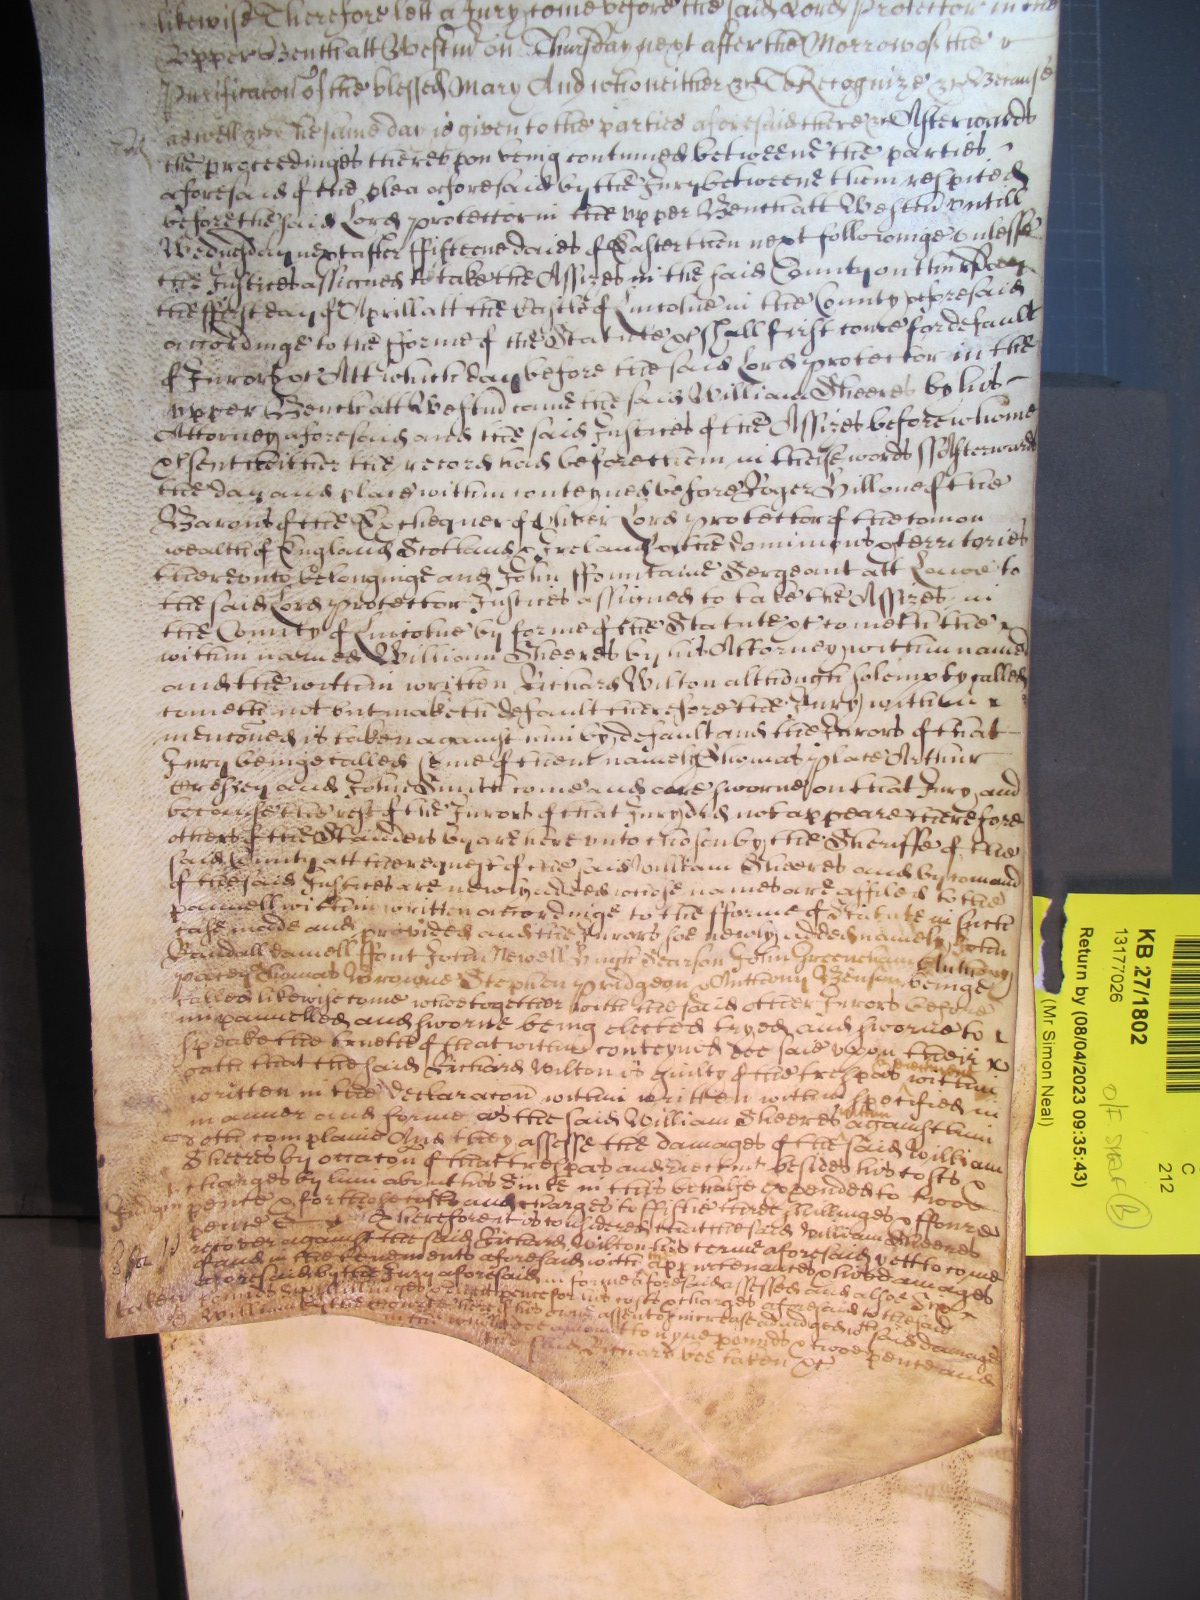 likewise Therefore lett a Jury come before the said Lord Protector in the
Upper Bench att Westm̄ on Thursday next after the Morrow of the
Purificac̃on of the blessed Mary And who neither &c To Recognize &c Because
aswell &c The same day is given to the parties aforesaid there &c Afterwards
the proceedinges thereupon being continued betweene the parties
aforesaid of the plea aforesaid by the Jury betweene them respited
before the said Lord protector in the upper Bench att Westm̄ untill
Wednesday next after fifteene daies of Easter then next followinge unlesse
the Justices assigned to take the Assizes in the said County on
the first day of Aprill att the Castle of Lincolne in the County aforesaid
accordinge to the fforme of the Statute &c shall first come for default
of Jurors &c Att which day before the said Lord protector in the
upper Bench att Westm̄ came the said William Sheeres by his
Attorney aforesaid and the said Justices of the Assizes before whome
&c sent hither their record had before them in these words ss Afterwards
the day and place within conteyned before Roger Hill one of the
Barons of the Exchequer of Oliver Lord protector of the com̄on
wealth of England Scotland & Ireland & the dominions & territories
thereunto belonginge and John ffountaine Sergeant att Lawe to
the said Lord protector Justices assigned to take the Assizes in
the County of Lincolne by forme of the Statute &c cometh the
within named William Sheeres by his Attorney within named
and the within written Richard Wilton although solemply called
cometh not but maketh default therefore the Jury within
menc̃oned is taken against him by default and the Jurors of that
Jury beinge called some of them namely Thomas place Arthur
and John Smith come and are sworne on that Jury and
because the rest of the Jurors of that Jury did not appeare therefore
others of the Standers by are hereunto chosen by the Sheriffe of the
said County att the request of the said William Sheeres and by com̄and
of the said Justices are newly added whose names are affiled to the
pannell within written accordinge to the fforme of Statute in such
case made and provided and the Jurors soe newly added namely John
Randall Daniell ffont John Newell Hugh Searson John Greenham Anthony
Thomas Browne Stephen pridgeon Anthony Benson beinge
called likewise come who together with the said other Jurors before
impannelled and sworne being elected tryed and sworne to
speake the trueth of that within conteyned doe say upon their
oath that the said Richard Wilton is guilty of the trespas within
written in the declarac̃on within written within specified in
manner and forme as the said William Sheeres within against him
doth complaine And they assesse the damages of the said William
Sheeres by occac̃on of that trespas and eiectm̄t besides his costs &
charges by him about his Suite in this behalfe expended to twoe
pence & for those costs and charges to fiftie three shillinges & foure
pence &c Therefore it is considered that the said William Sheeres
recover against the said Richard Wilton his terme aforesaid yett to come
of and in the tenements aforesaid with thappurtenances & his damages
aforesaid by the Jury aforesaid in forme aforesaid assessed and alsoe
pence for his costs & charges aforesaid to the said
William by the Court here of his owne assent of increase adiudged w̄ch said damages
in the whole doe amount to nyne pounds & twoe pence and
the said Richard bee taken &c
KB 27/1802
13177026
Return by (08/04/2023 09:35:43)
(Mr Simon Neal)
C
212